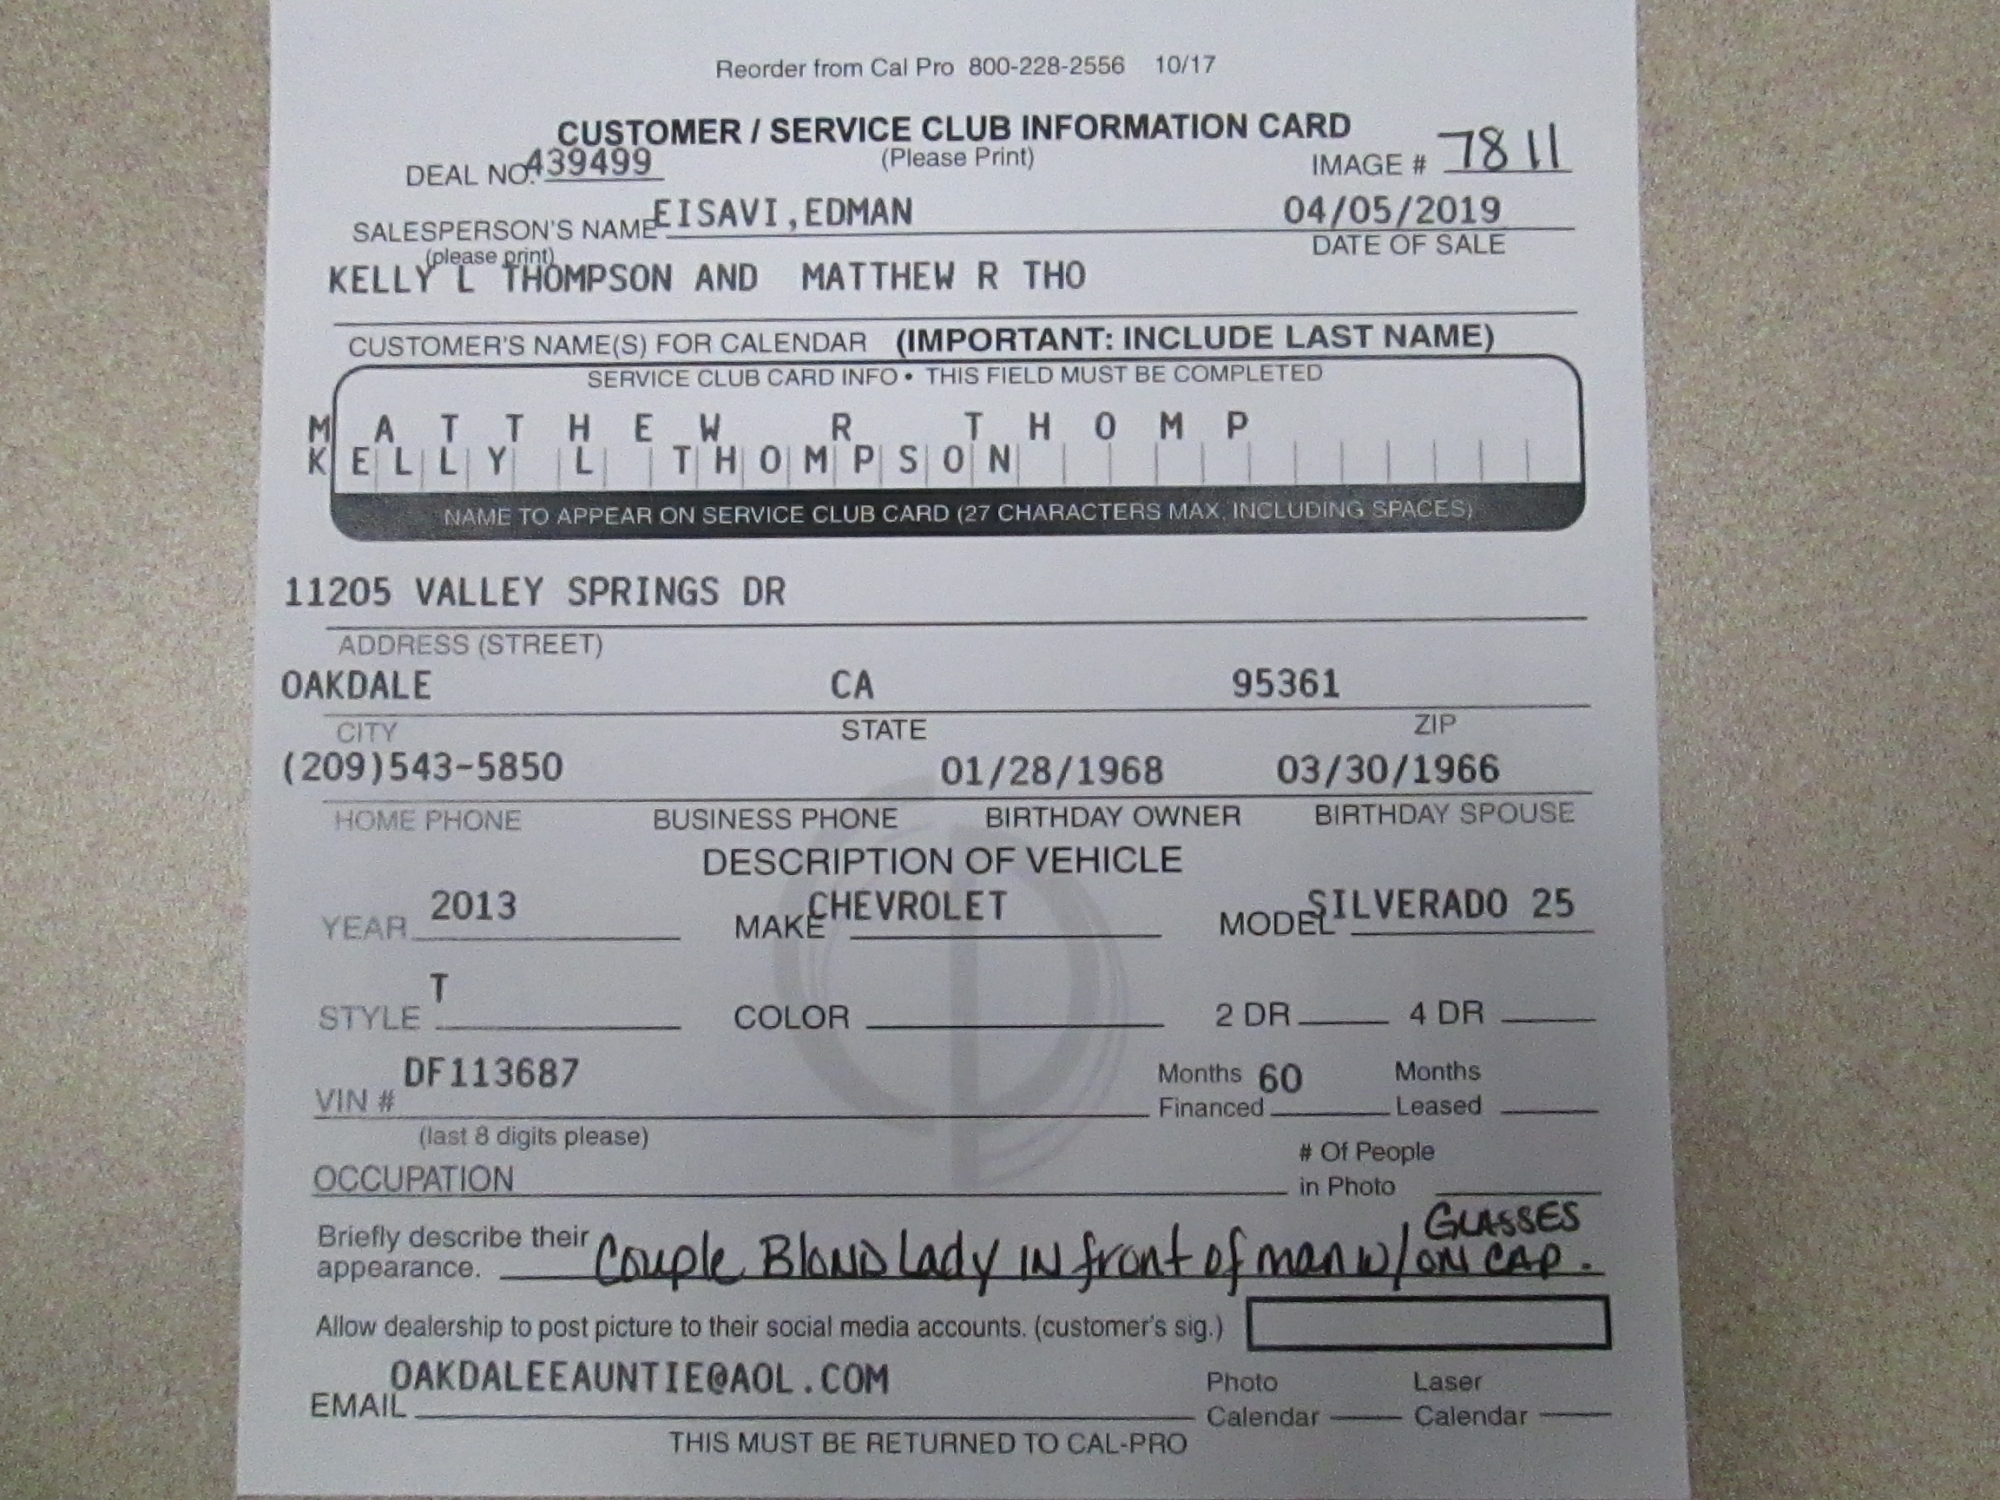 Reorder from Cal Pro 800-228-2556 10/17
CUSTOMER / SERVICE CLUB INFORMATION CARD
(Please Print)
DEAL NO. 439499
IMAGE # 7811
SALESPERSON'S NAME EISAVI,EDMAN 04/05/2019
(please print) DATE OF SALE
KELLY L THOMPSON AND MATTHEW R THO
CUSTOMER'S NAME(S) FOR CALENDAR (IMPORTANT: INCLUDE LAST NAME)
SERVICE CLUB CARD INFO • THIS FIELD MUST BE COMPLETED
MATTHEW R THOMP
KELLY L THOMPSON
NAME TO APPEAR ON SERVICE CLUB CARD (27 CHARACTERS MAX, INCLUDING SPACES)
11205 VALLEY SPRINGS DR
ADDRESS (STREET)
OAKDALE CA 95361
CITY STATE ZIP
(209)543-5850 01/28/1968 03/30/1966
HOME PHONE BUSINESS PHONE BIRTHDAY OWNER BIRTHDAY SPOUSE
DESCRIPTION OF VEHICLE
YEAR 2013 MAKE CHEVROLET MODEL SILVERADO 25
STYLE T COLOR 2 DR 4 DR
VIN # DF113687
(last 8 digits please)
Months Financed 60
Months Leased
OCCUPATION
# Of People
in Photo
Briefly describe their
appearance. Couple Blond lady in front of man w/ GLASSES on CAP.
Allow dealership to post picture to their social media accounts. (customer's sig.)
EMAIL OAKDALEEAUNTIE@AOL.COM
Photo Calendar
Laser Calendar
THIS MUST BE RETURNED TO CAL-PRO